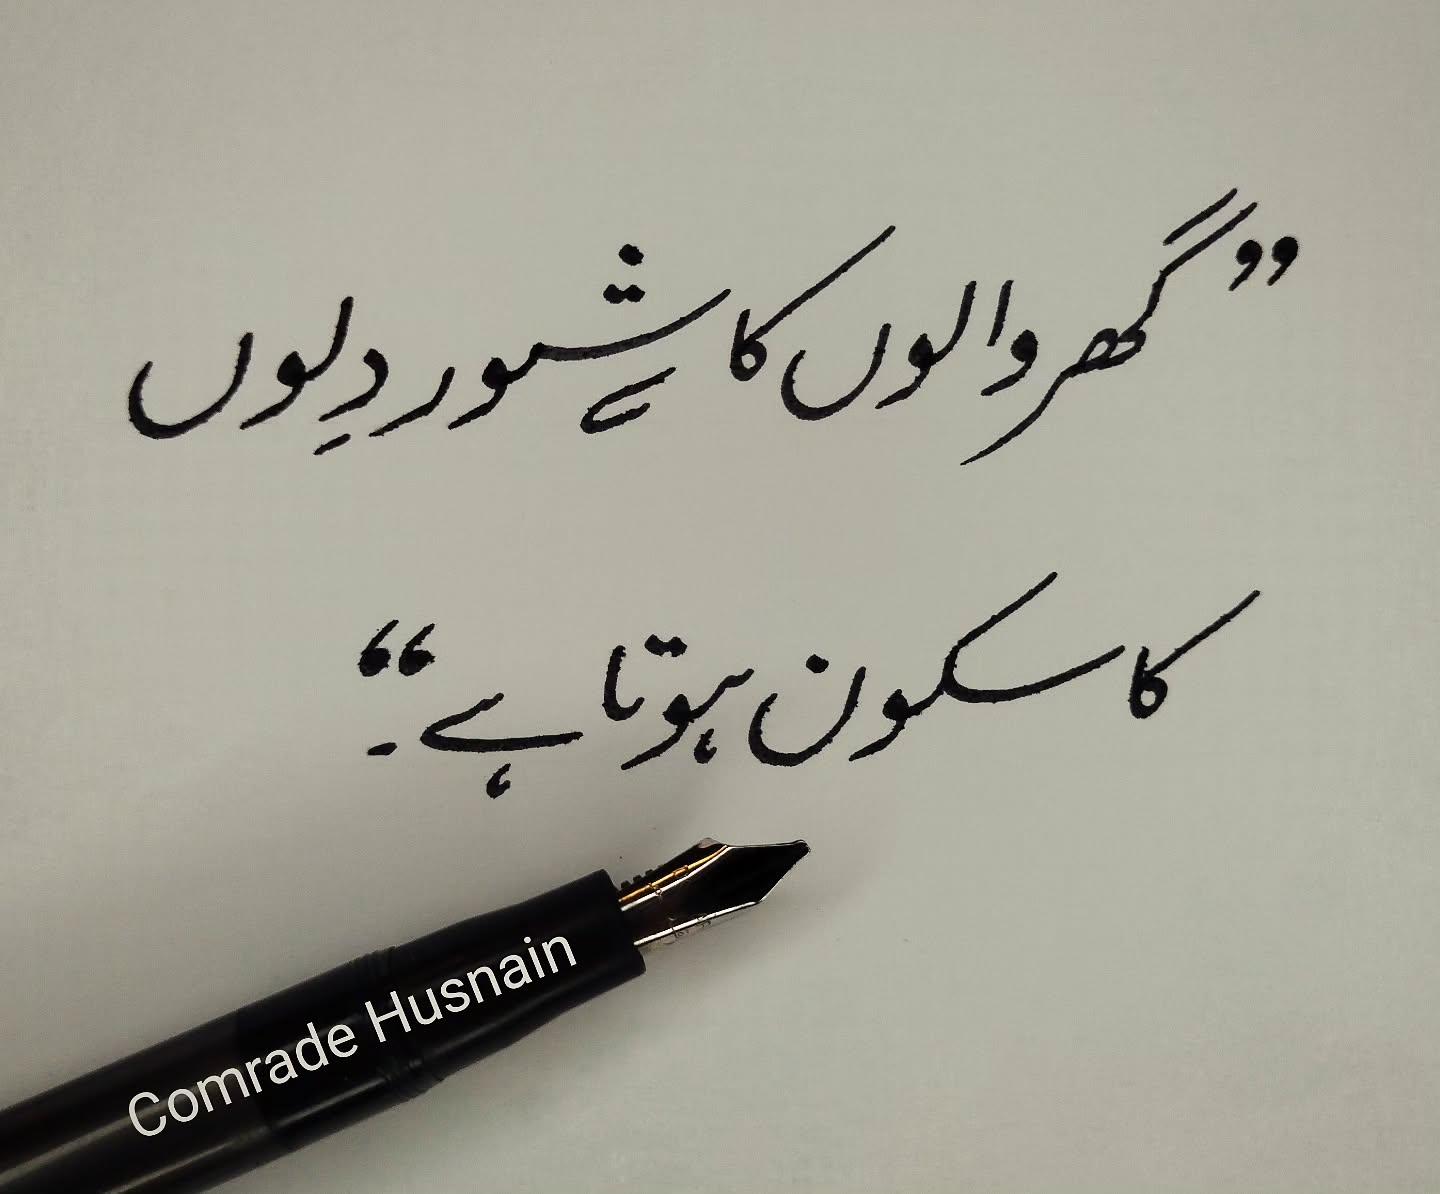 ”گھر والوں کا شور دِلوں
کا سکون ہوتا ہے۔“
Comrade Husnain